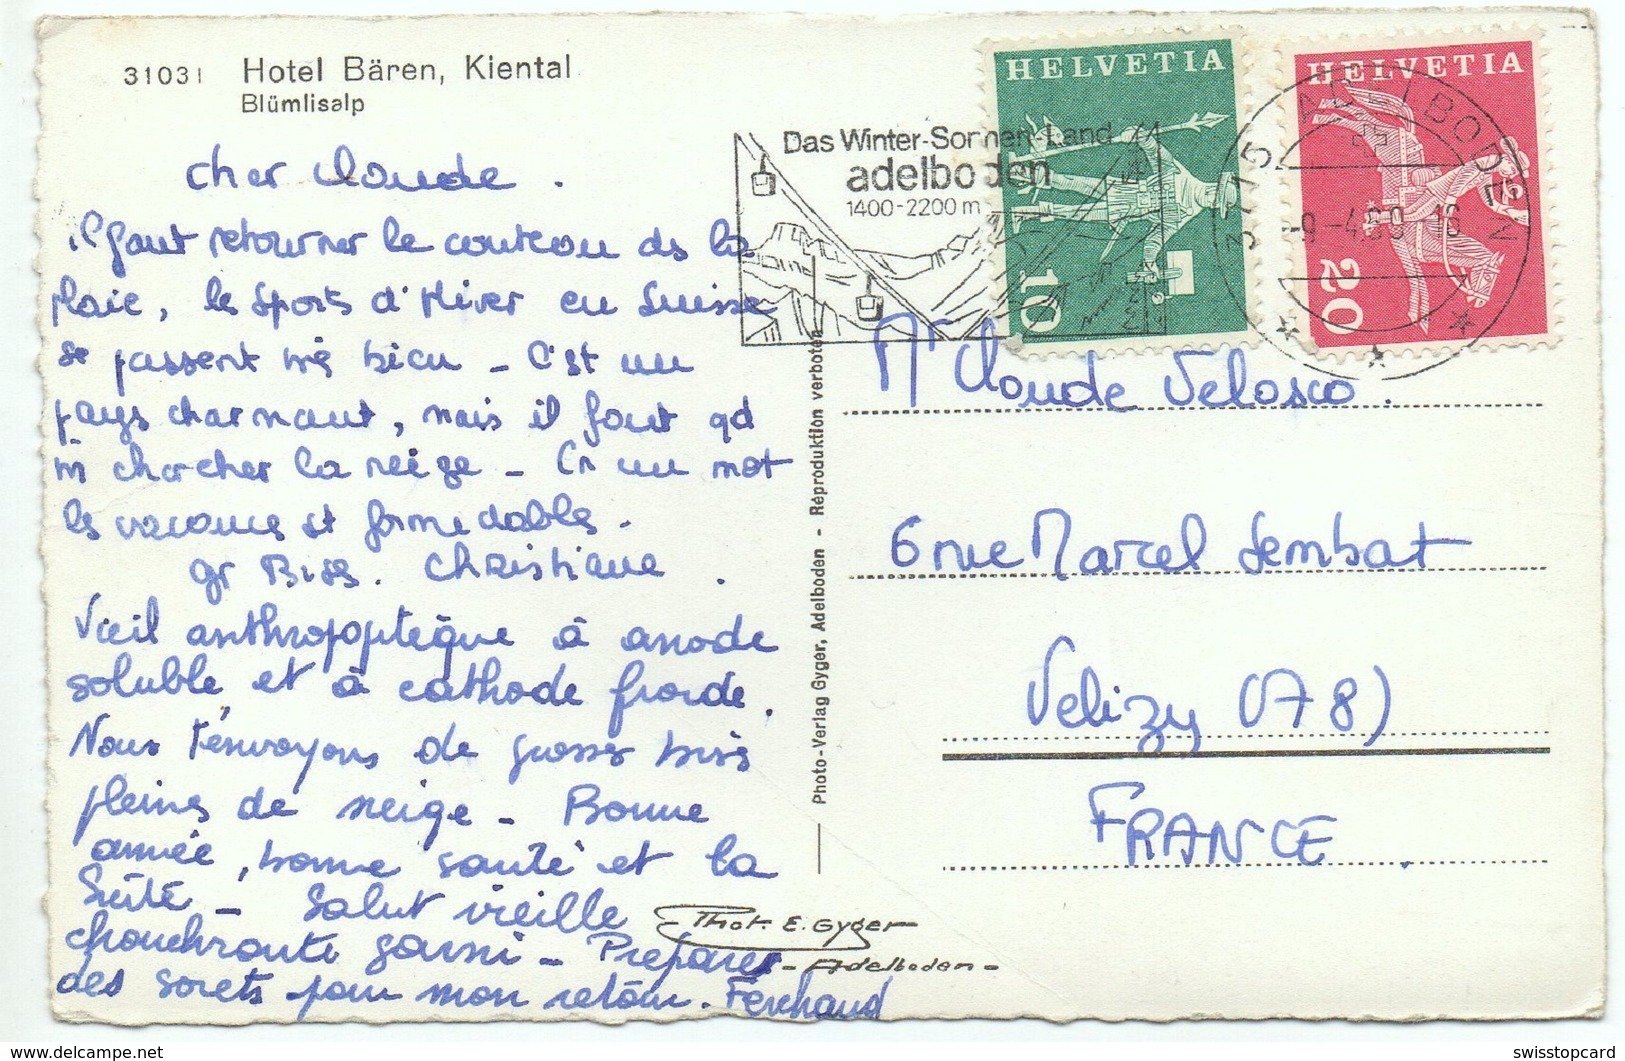 31031 Hotel Bären, Kiental
Blümlisalp
HELVETIA
10
HELVETIA
20
3715 ADELBODEN
-9.-4.69-16
Das Winter-Sonnen-Land
adelboden
1400-2200m
cher Claude.
il faut retourner le couteau ds la
plaie, les sports d'Hiver en Suisse
se passent très bien - C'est un
pays charmant, mais il faut qd
m̂ chercher la neige - En un mot
les vacances st formidables.
gr Bises. Christiane.
Vieil anthropoptèque à anode
soluble, et à cathode froide.
Nous t'envoyons de grosses bises
pleines de neige - Bonne
année, bonne santé et la
Suite - Salut vieille
chouchroute garni - Prépares
des sorets pour mon retour. Fernand
Photo-Verlag Gyger, Adelboden - Réproduktion verboten
Phot. E. Gyger
- Adelboden -
Mr Claude Velasco.
6 rue Marcel Sembat
Velizy (78)
FRANCE.
www.delcampe.net
swisstopcard